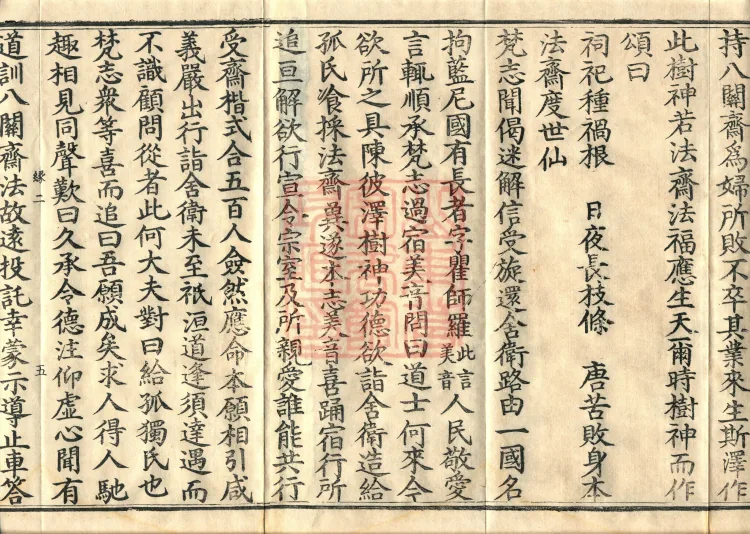 持八關齋爲婦所敗不卒其業來生斯澤作
此樹神若法齋法福應生天爾時樹神而作
頌曰
祠祀種禍根 日夜長枝條 唐苦敗身本
法齋度世仙
梵志聞偈迷解信受旋還舍衛路由一國名
拘藍尼國有長者字瞿師羅此言美音人民敬愛
言輒順承梵志過宿美音問曰道士何來今
欲所之具陳彼澤樹神功德欲詣舍衛造給
孤氏飡採法齋冀遂本志美音喜踊宿行所
追亘解欲行宣令宗室及所親愛誰能共行
受齋楷式合五百人僉然應命本願相引咸
義嚴出行詣舍衛未至祇洹道逢須達遇而
不識顧問從者此何大夫對曰給孤獨氏也
梵志衆等喜而追曰吾願成矣求人得人馳
趣相見同聲歎曰久承令德注仰虛心聞有
緣二 五
道訓八關齋法故遠投託幸蒙示導止車答